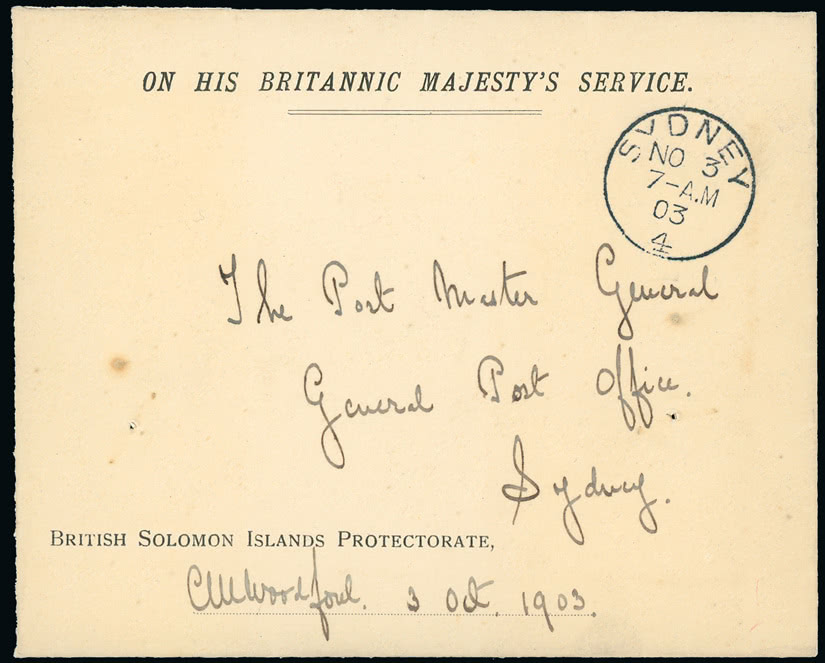 ON HIS BRITANNIC MAJESTY'S SERVICE.
SYDNEY
NO 3
7-A.M
03
4
The Post Master General
General Post Office.
Sydney.
BRITISH SOLOMON ISLANDS PROTECTORATE,
CMWoodford. 3 Oct. 1903.